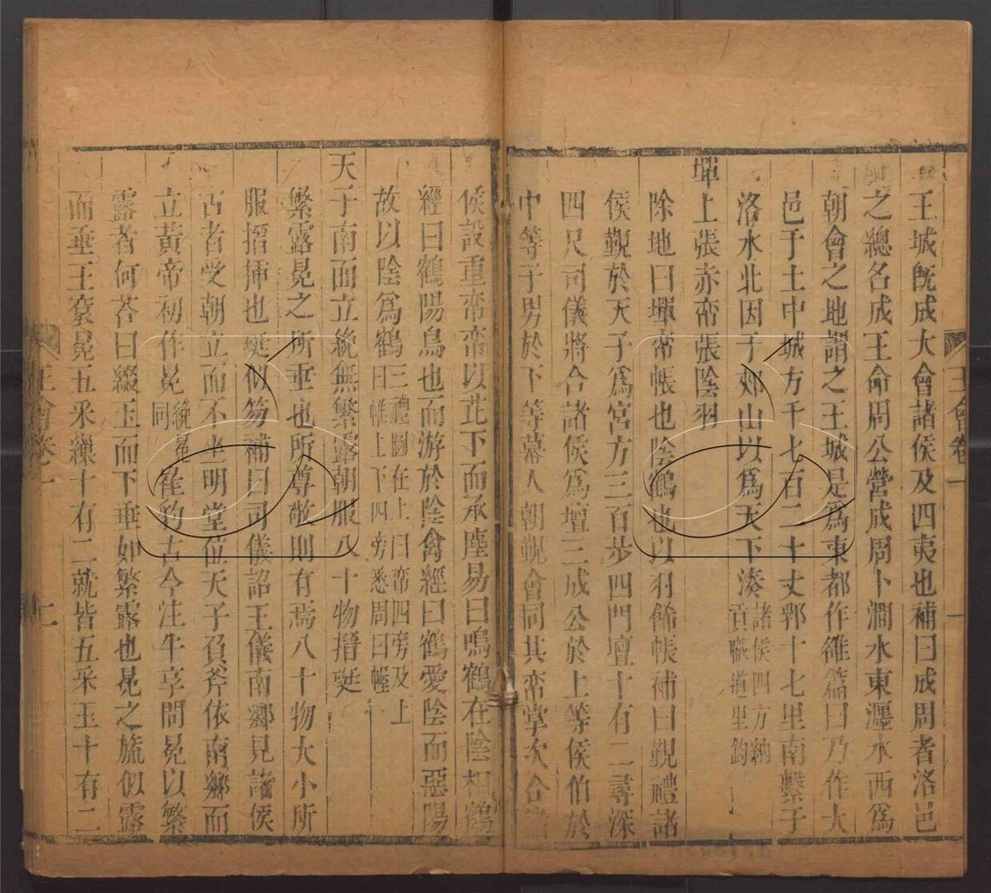 王城旣成大會諸侯及四夷也補曰成周者洛邑
之總名成王命周公營成周卜澗水東瀍水西爲
朝會之地謂之王城是爲東都作雒篇曰乃作大
邑于土中城方千七百二十丈郛十七里南繫于
洛水北因于郟山以爲天下湊諸侯四方納貢職道里鈞
墠上張赤帟張陰羽
除地曰墠帟帳也陰鶴也以羽飾帳補曰覲禮諸
侯覲於天子爲宮方三百步四門壇十有二尋深
四尺司儀將合諸侯爲壇三成公於上等侯伯於
中等子男於下等幕人朝覲會同共帟掌次合諸
侯設重帟帟以芘下而承塵易曰鳴鶴在陰相鶴
經曰鶴陽鳥也而游於陰禽經曰鶴愛陰而惡陽
故以陰爲鶴三禮圖在上曰帟四旁及上曰帷上下四旁悉周曰幄
天子南面立絻無繁露朝服八十物搢珽
繁露冕之所垂也所尊敬則有焉八十物大小所
服搢揷也珽似笏補曰司儀詔王儀南鄉見諸侯
古者受朝立而不坐明堂位天子負斧依南鄉而
立黃帝初作冕絻冕同崔豹古今注牛享問冕以繁
露者何荅曰綴玉而下垂如繁露也冕之旒似露
而垂王袞冕五采繅十有二就皆五采玉十有二
王會卷一
一
王會卷一
二